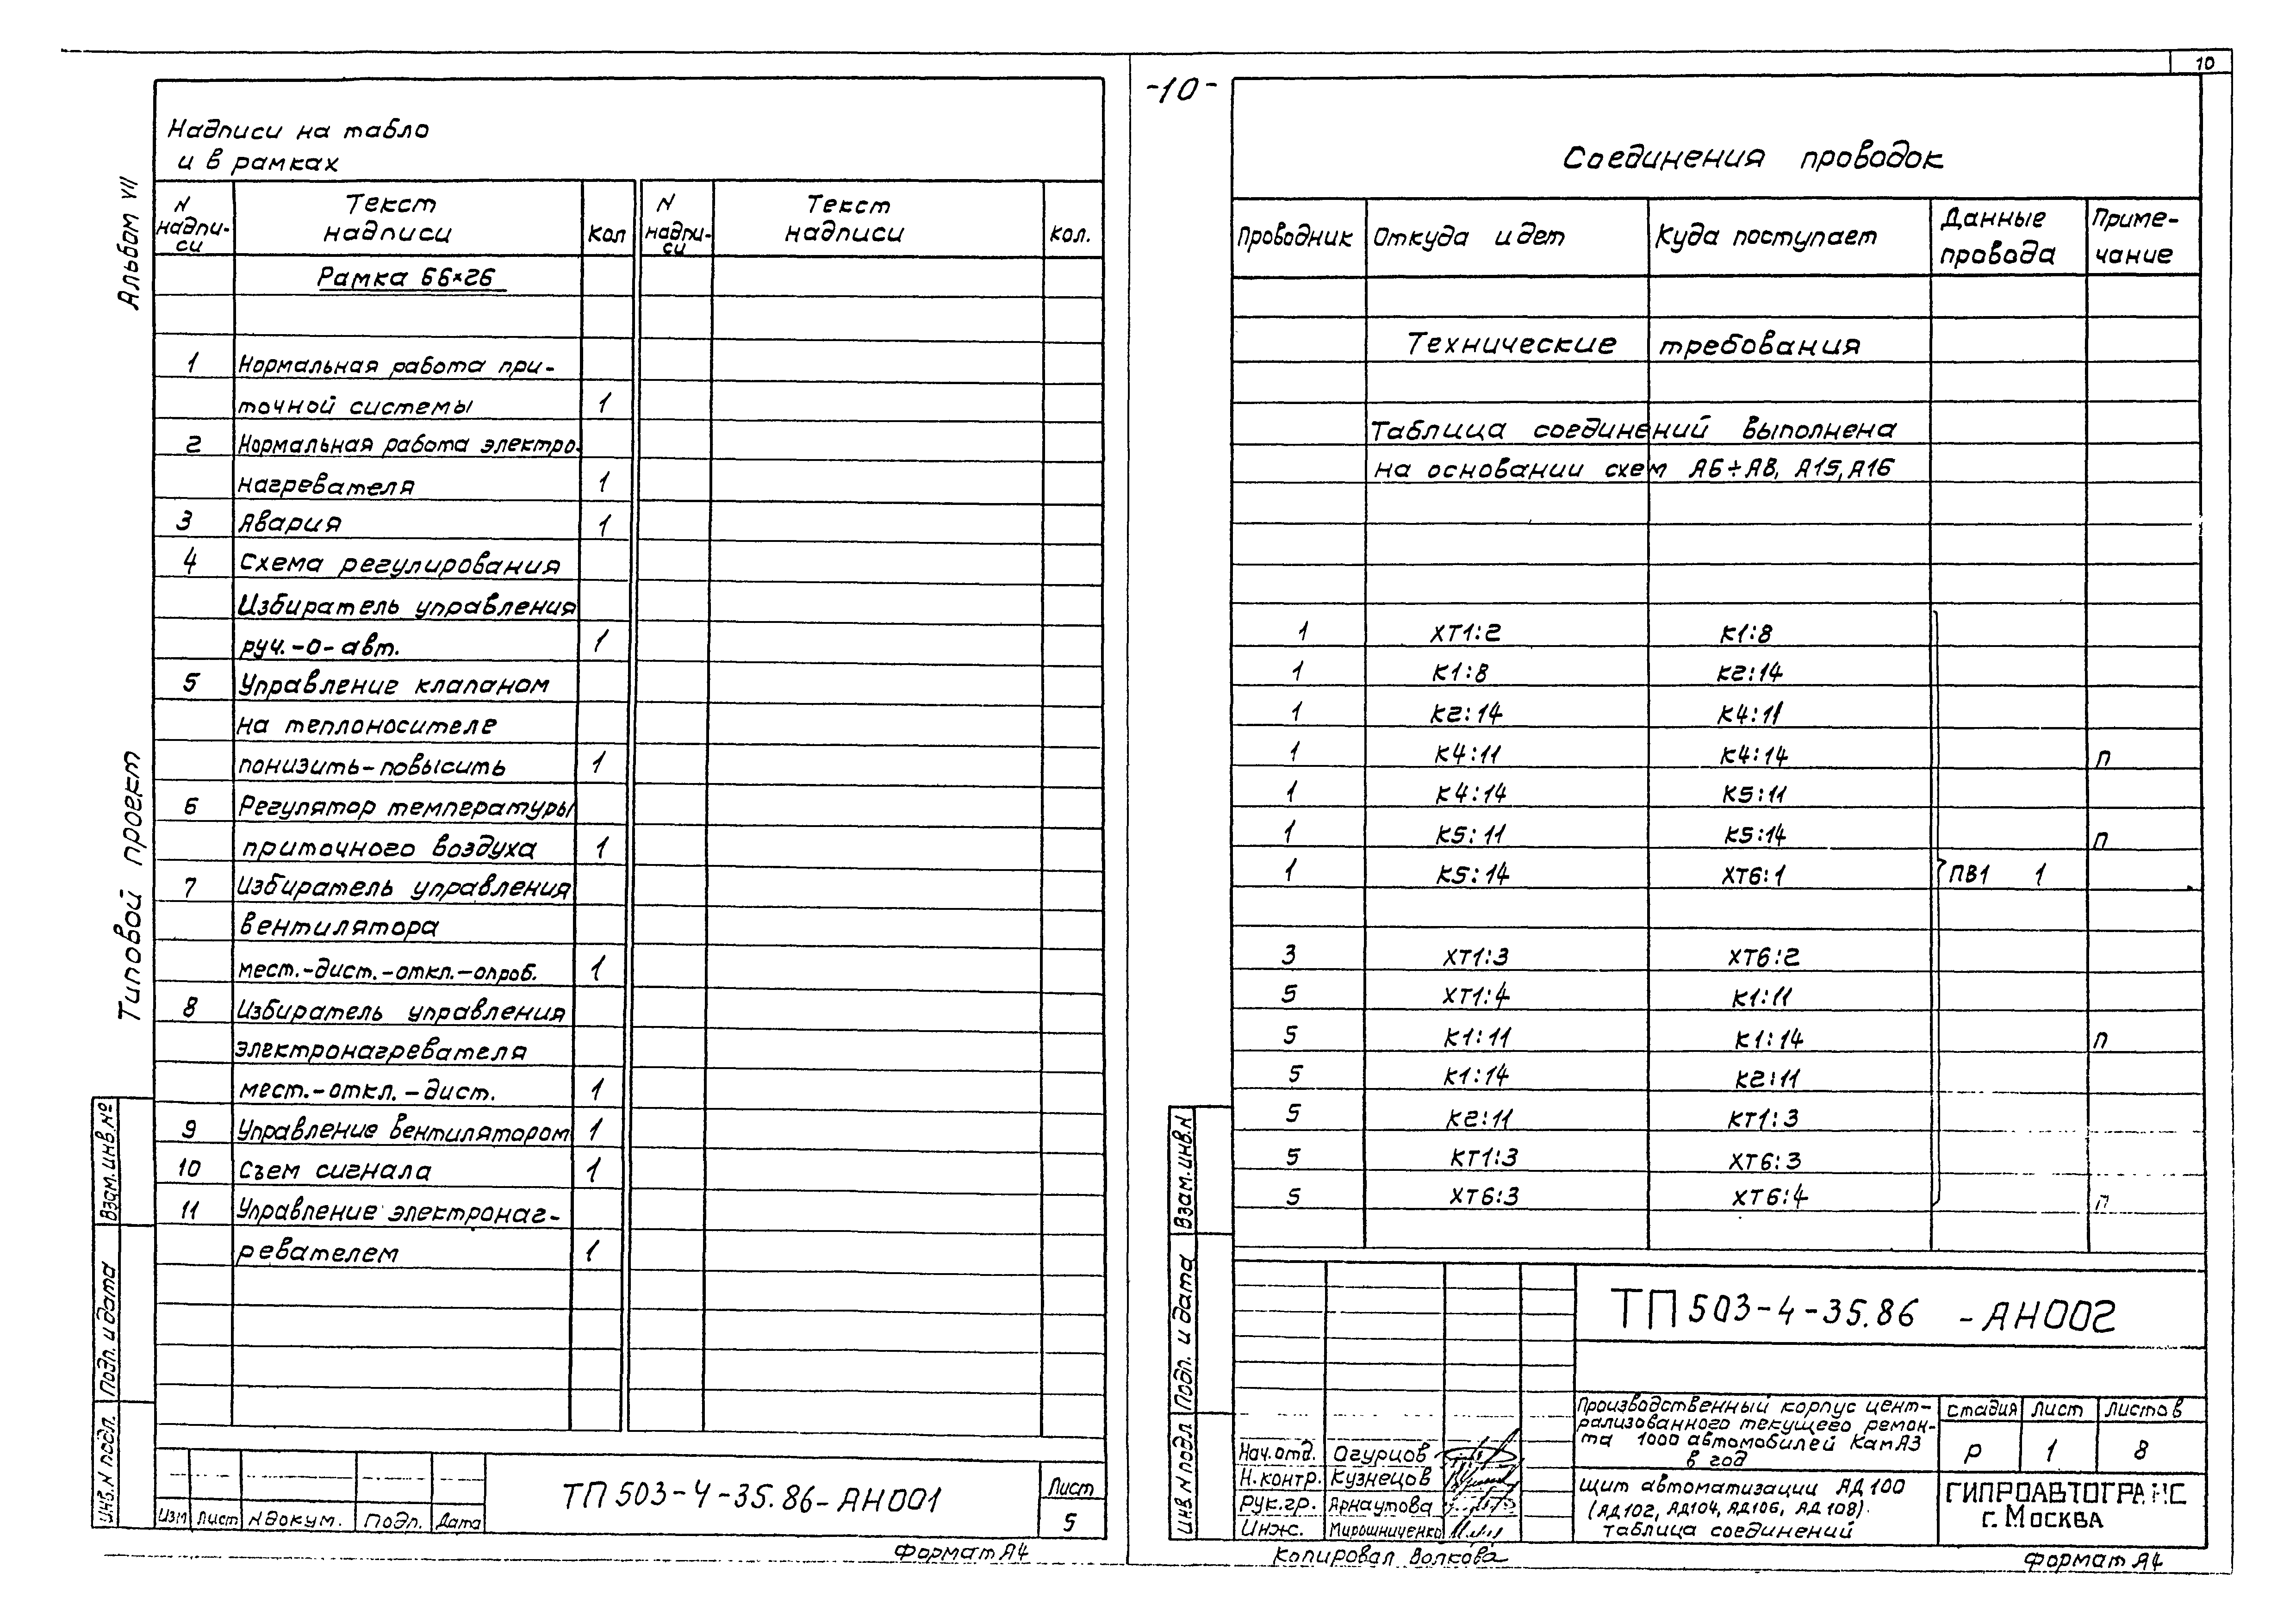 10
-10-
Альбом VII
Типовой проект
Надписи на табло
и в рамках
N надпи-си | Текст надписи | Кол | N надпи-си | Текст надписи | Кол.
Рамка 66×26
1 Нормальная работа при-
точной системы 1
2 Нормальная работа электро-
нагревателя 1
3 Авария 1
4 Схема регулирования
Избиратель управления
руч.-о-авт. 1
5 Управление клапаном
на теплоносителе
понизить-повысить 1
6 Регулятор температуры
приточного воздуха 1
7 Избиратель управления
вентилятора
мест.-дист.-откл.-опроб. 1
8 Избиратель управления
электронагревателя
мест.-откл.-дист. 1
9 Управление вентилятором 1
10 Съем сигнала 1
11 Управление электронаг-
ревателем 1
Взам.инв.№
Подп. и дата
Инв.N подл.
Изм Лист Nдокум. Подп. Дата
ТП 503-4-35.86-АН001
Лист
5
Формат А4
Соединения проводок
Проводник | Откуда идет | Куда поступает | Данные провода | Приме-чание
Технические требования
Таблица соединений выполнена
на основании схем А6÷А8, А15, А16
1 ХТ1:2 К1:8
1 К1:8 К2:14
1 К2:14 К4:11
1 К4:11 К4:14 П
1 К4:14 К5:11
1 К5:11 К5:14 П
1 К5:14 ХТ6:1 ПВ1 1
3 ХТ1:3 ХТ6:2
5 ХТ1:4 К1:11
5 К1:11 К1:14 П
5 К1:14 К2:11
5 К2:11 КТ1:3
5 КТ1:3 ХТ6:3
5 ХТ6:3 ХТ6:4 П
Взам.инв.N
Подп. и дата
Инв.N подл
ТП 503-4-35.86 -АН002
Производственный корпус цент-
рализованного текущего ремон-
та 1000 автомобилей КамАЗ
в год
стадия лист листов
Р 1 8
Нач.отд. Огурцов
Н.контр. Кузнецов
Рук.гр. Арнаутова
Инж. Мирошниченко
Щит автоматизации АД100
(АД102, АД104, АД106, АД108).
Таблица соединений
ГИПРОАВТОТРАНС
г. Москва
Копировал Волкова
Формат А4